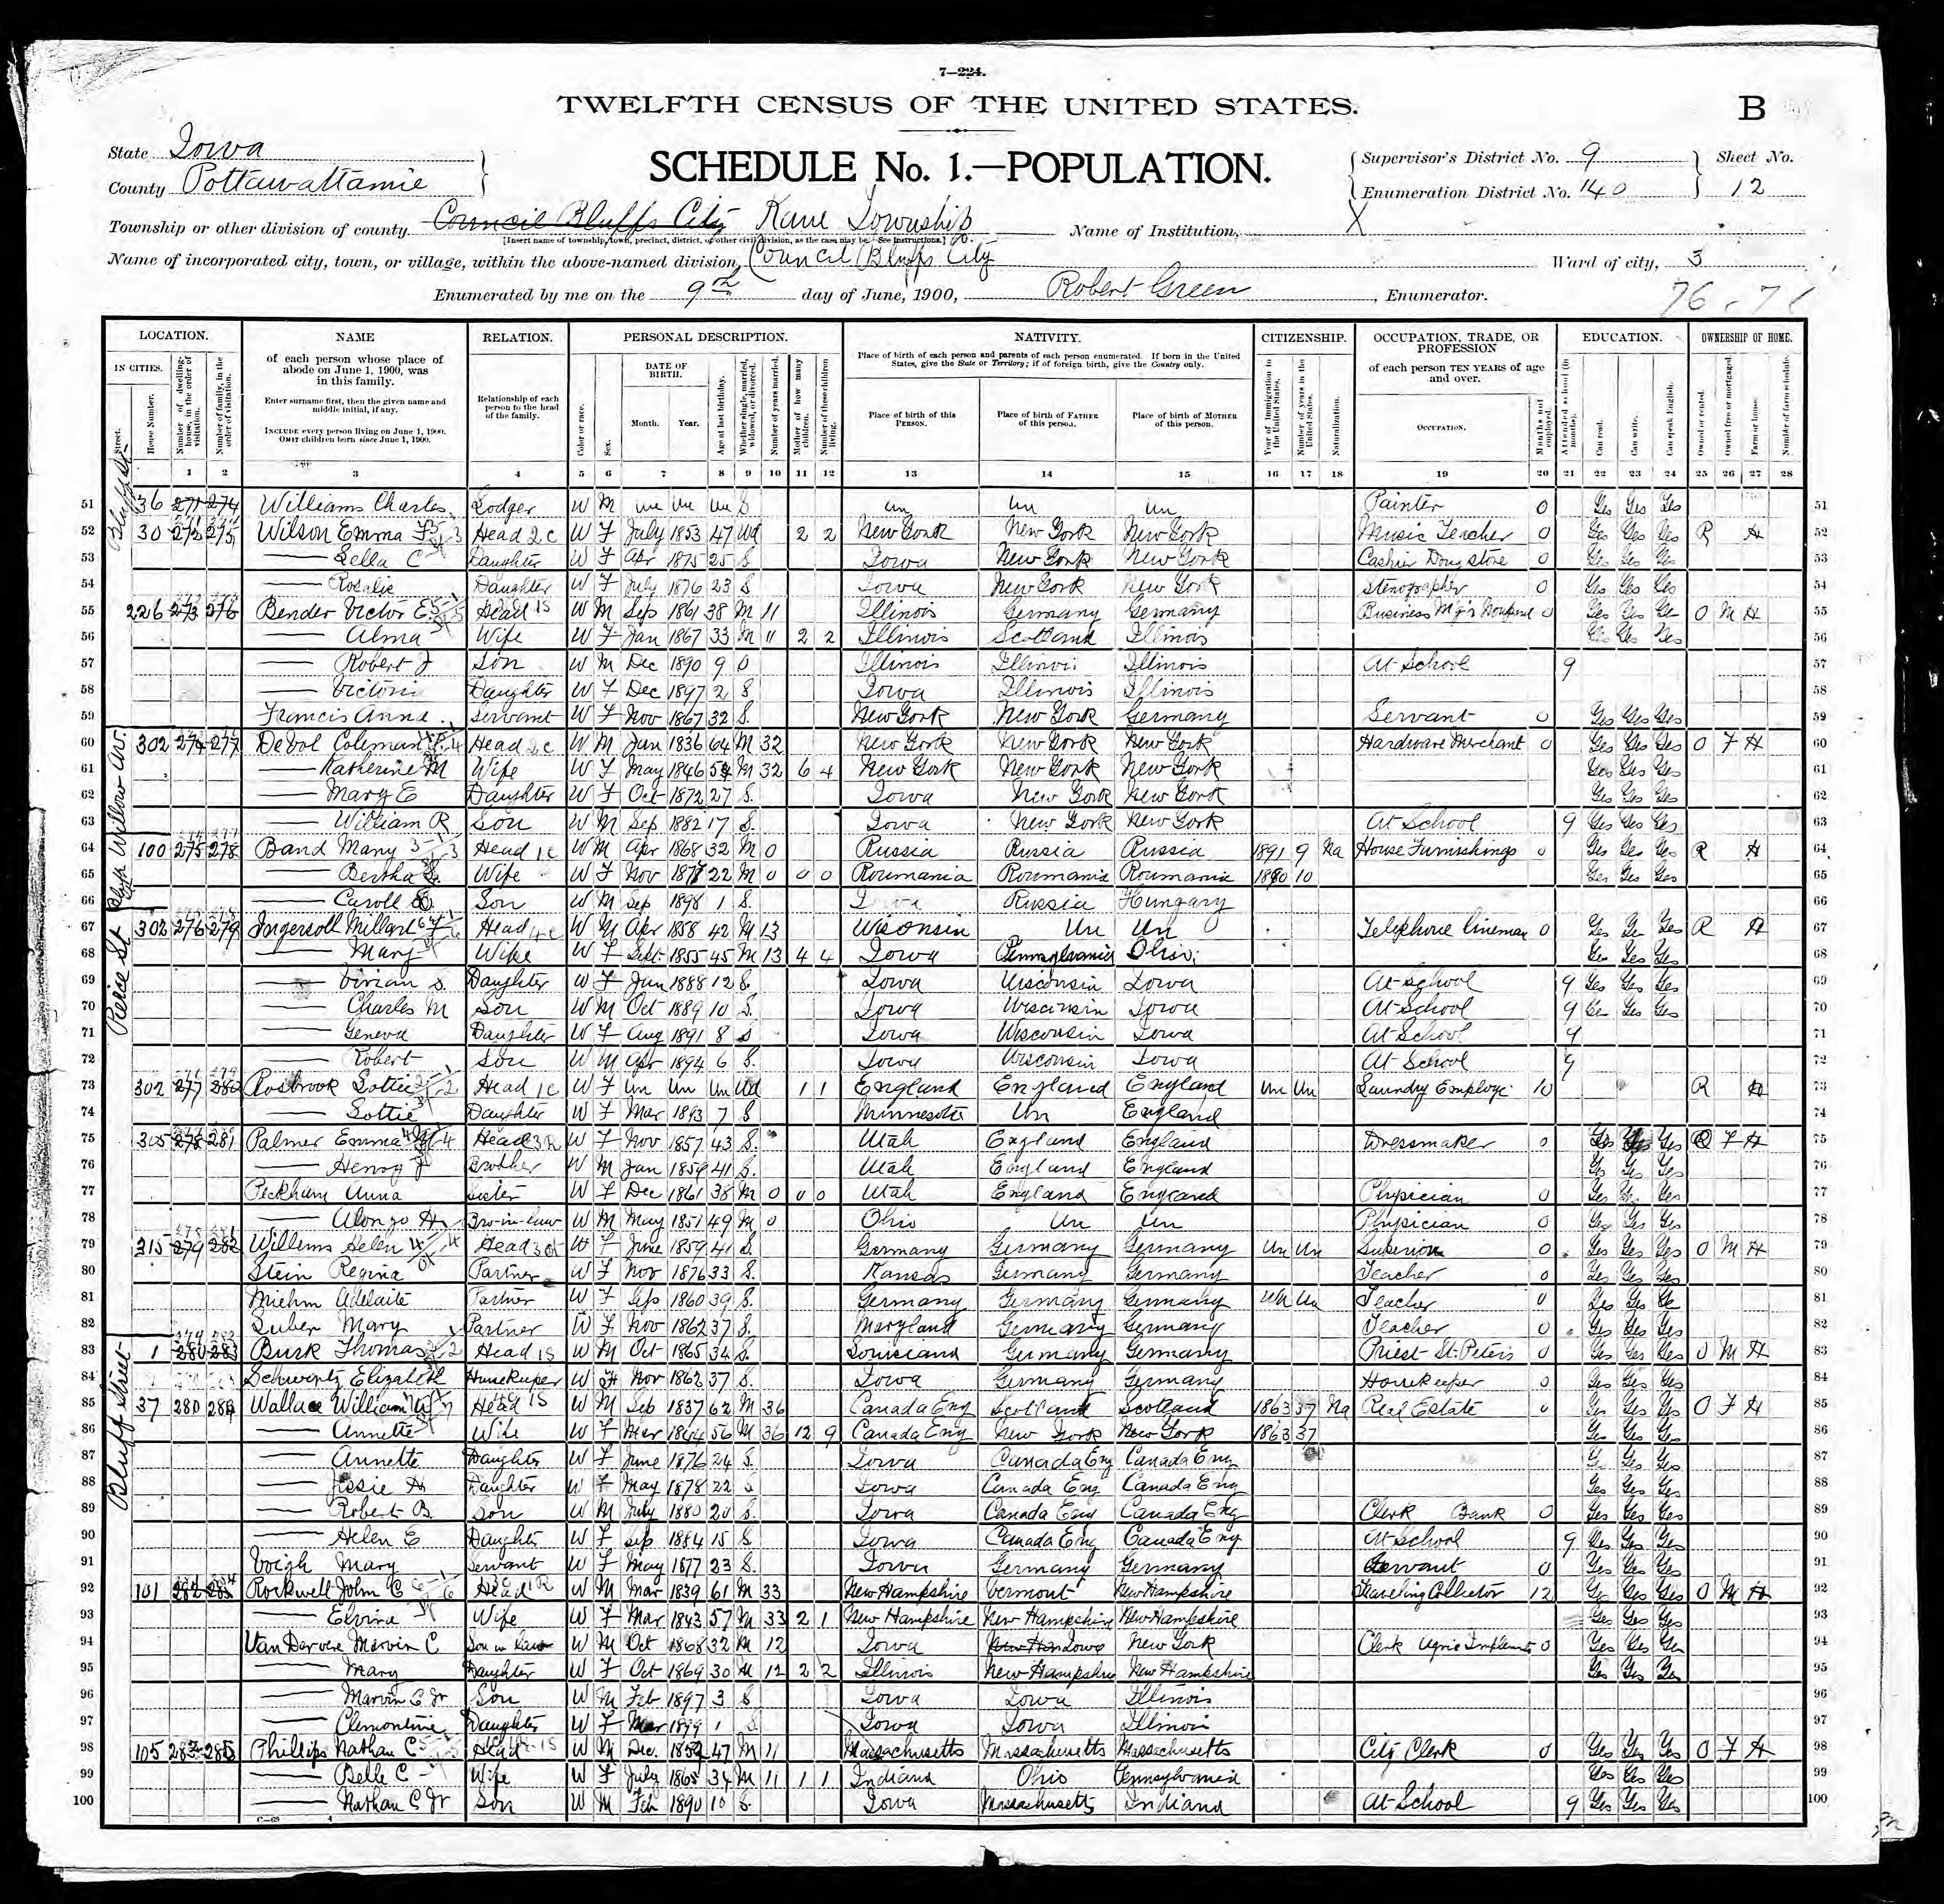 7—224.
TWELFTH CENSUS OF THE UNITED STATES.
B
State Iowa
County Pottawattamie
SCHEDULE No. 1.—POPULATION.
Supervisor's District No. 9
Enumeration District No. 140
Sheet No.
12
Township or other division of county Council Bluffs City Kane Township
[Insert name of township, town, precinct, district, or other civil division, as the case may be. See instructions.]
Name of Institution, X
Name of incorporated city, town, or village, within the above-named division, Council Bluffs City
Ward of city, 3
Enumerated by me on the 9th day of June, 1900, Robert Green, Enumerator.
76
LOCATION. NAME RELATION. PERSONAL DESCRIPTION. NATIVITY. CITIZENSHIP. OCCUPATION, TRADE, OR PROFESSION EDUCATION. OWNERSHIP OF HOME.
IN CITIES.
Street.
House Number.
Number of dwelling-house, in the order of visitation.
Number of family, in the order of visitation.
of each person whose place of abode on June 1, 1900, was in this family.
Enter surname first, then the given name and middle initial, if any.
INCLUDE every person living on June 1, 1900.
OMIT children born since June 1, 1900.
Relationship of each person to the head of the family.
Color or race.
Sex.
DATE OF BIRTH.
Month. Year.
Age at last birthday.
Whether single, married, widowed, or divorced.
Number of years married.
Mother of how many children.
Number of these children living.
Place of birth of each person and parents of each person enumerated. If born in the United States, give the State or Territory; if of foreign birth, give the Country only.
Place of birth of this PERSON.
Place of birth of FATHER of this person.
Place of birth of MOTHER of this person.
Year of immigration to the United States.
Number of years in the United States.
Naturalization.
of each person TEN YEARS of age and over.
OCCUPATION.
Months not employed.
Attended school (in months).
Can read.
Can write.
Can speak English.
Owned or rented.
Owned free or mortgaged.
Farm or house.
Number of farm schedule.
1 2 3 4 5 6 7 8 9 10 11 12 13 14 15 16 17 18 19 20 21 22 23 24 25 26 27 28
Bluff St
51 36 271 274 Williams Charles Lodger W M Un Un Un S Un Un Un Painter 0 Yes Yes Yes 51
52 30 272 275 Wilson Emma F Head W F July 1853 47 Wd 2 2 New York New York New York Music Teacher 0 Yes Yes Yes R H 52
53 — C Daughter W F Apr 1875 25 S Iowa New York New York Cashier Drug store 0 Yes Yes Yes 53
54 — Rosalie Daughter W F July 1876 23 S Iowa New York New York Stenographer 0 Yes Yes Yes 54
55 226 273 276 Bender Victor E. Head W M Sep 1861 38 M 11 Illinois Germany Germany Business Mg'r 0 Yes Yes Yes O M H 55
56 — Alma Wife W F Jan 1867 33 M 11 2 2 Illinois Scotland Illinois Yes Yes Yes 56
57 — Robert J Son W M Dec 1890 9 Illinois Illinois Illinois At School 9 57
58 — Daughter W F Dec 1897 2 S Iowa Illinois Illinois 58
59 Francis Anna Servant W F Nov 1867 32 S. New York New York Germany Servant 0 Yes Yes Yes 59
Willow Av.
60 302 274 277 DeVol Coleman Head W M Jan 1836 64 M 32 New York New York New York Hardware Merchant 0 Yes Yes Yes O F H 60
61 — Katherine M Wife W F May 1846 54 M 32 6 4 New York New York New York Yes Yes Yes 61
62 — Mary E Daughter W F Oct 1872 27 S. Iowa New York New York Yes Yes Yes 62
63 — William R Son W M Sep 1882 17 S. Iowa New York New York At School 9 Yes Yes Yes 63
64 100 275 278 Band Many Head W M Apr 1868 32 M 0 Russia Russia Russia 1891 9 Na House Furnishings 0 Yes Yes Yes R H 64
65 — Bertha Wife W F Nov 22 M 0 0 0 Roumania Roumania Roumania 10 Yes Yes Yes 65
66 — Caroll Son W M Sep 1898 1 S. Iowa Russia Hungary 66
Pierce St
67 302 276 279 Ingersoll Millard Head W M Apr 1858 42 M 13 Wisconsin Un Un Telephone lineman 0 Yes Yes Yes R H 67
68 — Mary Wife W F Sept 1855 45 M 13 4 4 Iowa Pennsylvania Ohio Yes Yes Yes 68
69 — Vivian S. Daughter W F Jan 1888 12 S. Iowa Wisconsin Iowa At School 9 Yes Yes Yes 69
70 — Charles M Son W M Oct 1889 10 S. Iowa Wisconsin Iowa At School 9 Yes Yes Yes 70
71 — Geneva Daughter W F Aug 1891 8 S Iowa Wisconsin Iowa At School 9 71
72 — Robert Son W M Apr 1894 6 S. Iowa Wisconsin Iowa At School 9 72
73 302 277 280 Rosbrook Lottie Head W F Un Un Un Wd 1 1 England England England Un Un Laundry Employe 10 R H 73
74 — Lottie Daughter W F Mar 1893 7 S Minnesota Un England 74
75 305 278 281 Palmer Emma Head W F Nov 1857 43 S. Utah England England Dressmaker 0 Yes Yes Yes O F H 75
76 — Henry J Brother W M Jan 1859 41 S. Utah England England Yes Yes Yes 76
77 Peckham Anna Sister W F Dec 1861 38 M 0 0 0 Utah England England Physician 0 Yes Yes Yes 77
78 — Alonzo H Bro-in-law W M May 1851 49 M 0 Ohio Un Un Physician 0 Yes Yes Yes 78
79 315 279 282 Willems Helen Head W F June 1859 41 S. Germany Germany Germany Un Un Superior 0 Yes Yes Yes O M H 79
80 Stein Regina Partner W F Nov 1876 33 S. Kansas Germany Germany Teacher 0 Yes Yes Yes 80
81 Miehm Adelaite Partner W F Sep 1860 39 S. Germany Germany Germany Un Un Teacher 0 Yes Yes Yes 81
82 Mary Partner W F Nov 1862 37 S. Maryland Germany Germany Teacher 0 Yes Yes Yes 82
Bluff Street
83 1 280 283 Thomas Head W M Oct 1865 34 S. Louisiana Germany Germany Priest St. Peters 0 Yes Yes Yes O M H 83
84 Schwartz Elizabeth Housekeeper W F Nov 1862 37 S. Iowa Germany Germany Housekeeper 0 Yes Yes Yes 84
85 37 280 284 Wallace William Head W M Sep 1837 62 M 36 Canada Eng Scotland Scotland 1863 37 Na Real Estate 0 Yes Yes Yes O F H 85
86 — Annette Wife W F Mar 1844 56 M 36 12 9 Canada Eng New York New York 1863 37 Yes Yes Yes 86
87 — Annette Daughter W F June 1876 24 S. Iowa Canada Eng Canada Eng Yes Yes Yes 87
88 — Jessie H Daughter W F May 1878 22 S Iowa Canada Eng Canada Eng Yes Yes Yes 88
89 — Robert B. Son W M July 1880 20 S. Iowa Canada Eng Canada Eng Clerk Bank 0 Yes Yes Yes 89
90 — Helen E Daughter W F Sep 1884 15 S. Iowa Canada Eng Canada Eng At School 9 Yes Yes Yes 90
91 Voigh Mary Servant W F May 1877 23 S. Iowa Germany Germany Servant 0 Yes Yes Yes 91
92 101 Rockwell John C Head W M Mar 1839 61 M 33 New Hampshire Vermont New Hampshire Traveling Collector 12 Yes Yes Yes O M H 92
93 — Elvira Wife W F Mar 1843 57 M 33 2 1 New Hampshire New Hampshire New Hampshire Yes Yes Yes 93
94 Van Dervere Marvin C Son in law W M Oct 1868 32 M 12 Iowa Iowa New York Clerk Agric Implemts 0 Yes Yes Yes 94
95 — Mary Daughter W F Oct 1869 30 M 12 2 2 Illinois New Hampshire New Hampshire Yes Yes Yes 95
96 — Marvin C Jr Son W M Feb 1897 3 S Iowa Iowa Illinois 96
97 — Clemontine Daughter W F Mar 1899 1 S. Iowa Iowa Illinois 97
98 105 Phillips Nathan C Head W M Dec. 1852 47 M 11 Massachusetts Massachusetts Massachusetts City Clerk 0 Yes Yes Yes O F H 98
99 — Belle C Wife W F July 1865 34 M 11 1 1 Indiana Ohio Pennsylvania Yes Yes Yes 99
100 — Nathan C Jr Son W M Feb 1890 10 S. Iowa Massachusetts Indiana At School 9 Yes Yes Yes 100